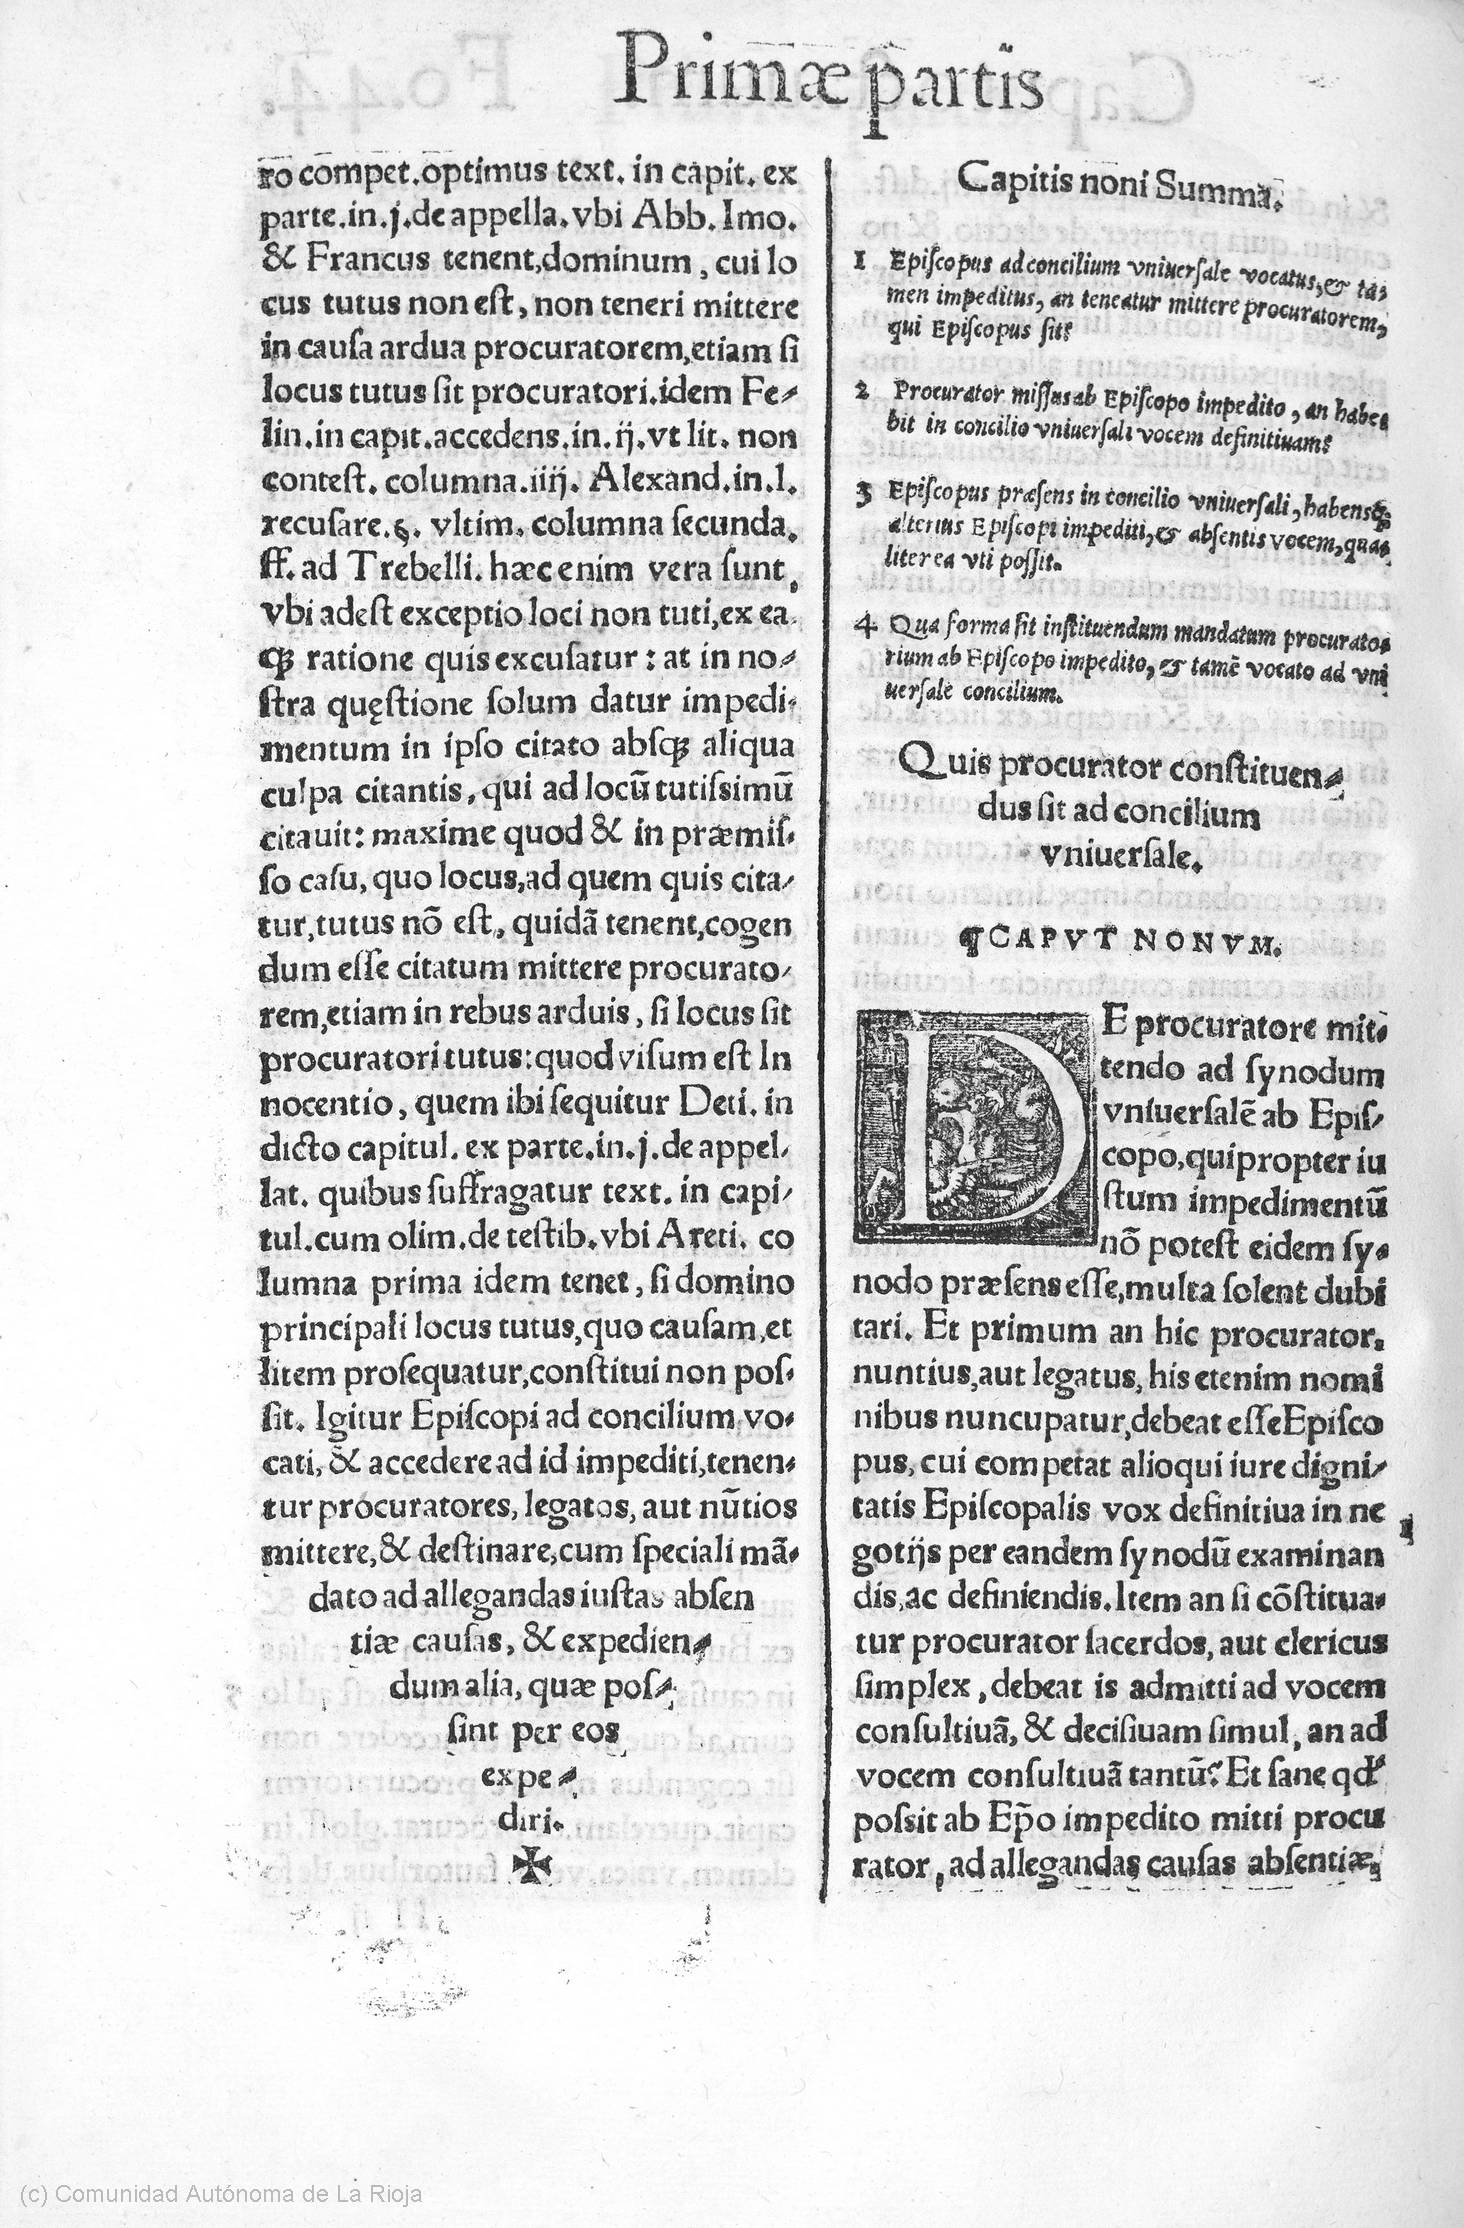 Primæ partis
ro compet. optimus text. in capit. ex
parte.in.j.de appella.vbi Abb. Imo.
& Francus tenent,dominum, cui lo
cus tutus non est, non teneri mittere
in causa ardua procuratorem,etiam si
locus tutus sit procuratori.idem Fe-
lin.in capit.accedens.in.ij.vt lit. non
contest. columna.iiij. Alexand.in.l.
recusare.§. vltim. columna secunda.
ff. ad Trebelli. hæc enim vera sunt,
vbi adest exceptio loci non tuti,ex ea
q́; ratione quis excusatur: at in no-
stra quęstione solum datur impedi-
mentum in ipso citato absq; aliqua
culpa citantis, qui ad locū tutissimū
citauit: maxime quod & in præmis-
so casu, quo locus,ad quem quis cita-
tur,tutus nō est, quidā tenent,cogen
dum esse citatum mittere procurato-
rem,etiam in rebus arduis, si locus sit
procuratori tutus:quod visum est In
nocentio, quem ibi sequitur Deti. in
dicto capitul. ex parte.in.j.de appel-
lat. quibus suffragatur text. in capi-
tul.cum olim.de testib.vbi Areti. co
lumna prima idem tenet, si domino
principali locus tutus,quo causam,et
litem prosequatur,constitui non pos-
sit. Igitur Episcopi ad concilium vo-
cati, & accedere ad id impediti,tenen-
tur procuratores, legatos, aut nūtios
mittere,& destinare,cum speciali mā-
dato ad allegandas iustas absen
tiæ causas, & expedien-
dum alia, quæ pos-
sint per eos
expe-
diri.
✠
Capitis noni Summa.
1 Episcopus ad concilium vniuersale vocatus,& ta-
men impeditus, an teneatur mittere procuratorem,
qui Episcopus sit?
2 Procurator missus ab Episcopo impedito, an habe-
bit in concilio vniuersali vocem definitiuam?
3 Episcopus præsens in concilio vniuersali, habensq;
alterius Episcopi impediti,& absentis vocem,qua-
liter ea vti possit.
4 Qua forma sit instituendum mandatum procurato-
rium ab Episcopo impedito, & tamē vocato ad vni
uersale concilium.
Quis procurator constituen-
dus sit ad concilium
vniuersale.
¶CAPVT NONVM.
DE procuratore mit-
tendo ad synodum
vniuersalē ab Epis-
copo,qui propter iu
stum impedimentū
nō potest eidem sy-
nodo præsens esse,multa solent dubi
tari. Et primum an hic procurator,
nuntius,aut legatus, his etenim nomi
nibus nuncupatur,debeat esse Episco
pus, cui competat alioqui iure digni-
tatis Episcopalis vox definitiua in ne
gotijs per eandem synodū examinan 1
dis,ac definiendis.Item an si cōstitua-
tur procurator sacerdos, aut clericus
simplex, debeat is admitti ad vocem
consultiuā, & decisiuam simul, an ad
vocem consultiuā tantū? Et sane qd'
possit ab Ep̄o impedito mitti procu
rator, ad allegandas causas absentiæ,
(c) Comunidad Autónoma de La Rioja